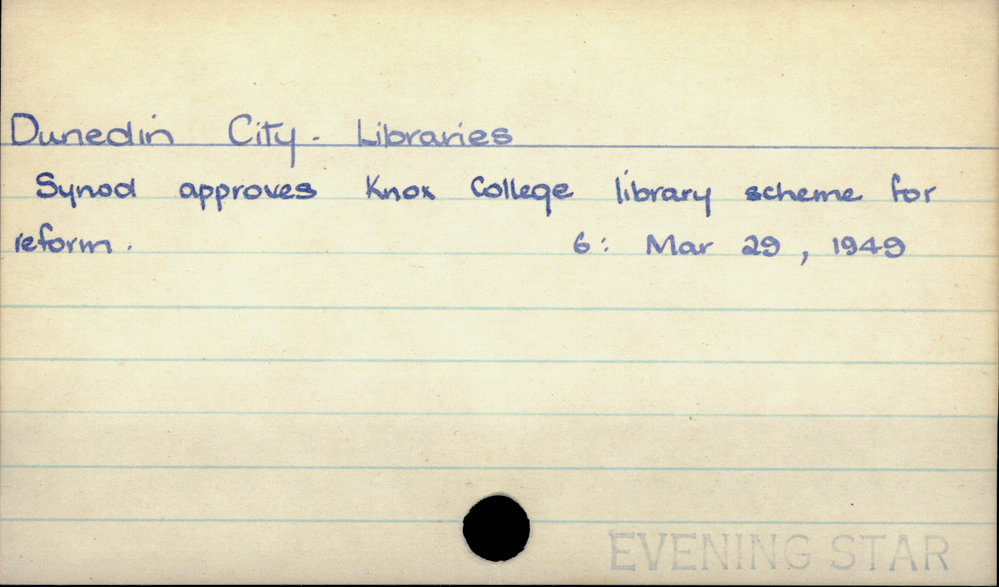 Dunedin City - Libraries
Synod approves Knox College library scheme for
reform. 6: Mar 29, 1949
EVENING STAR